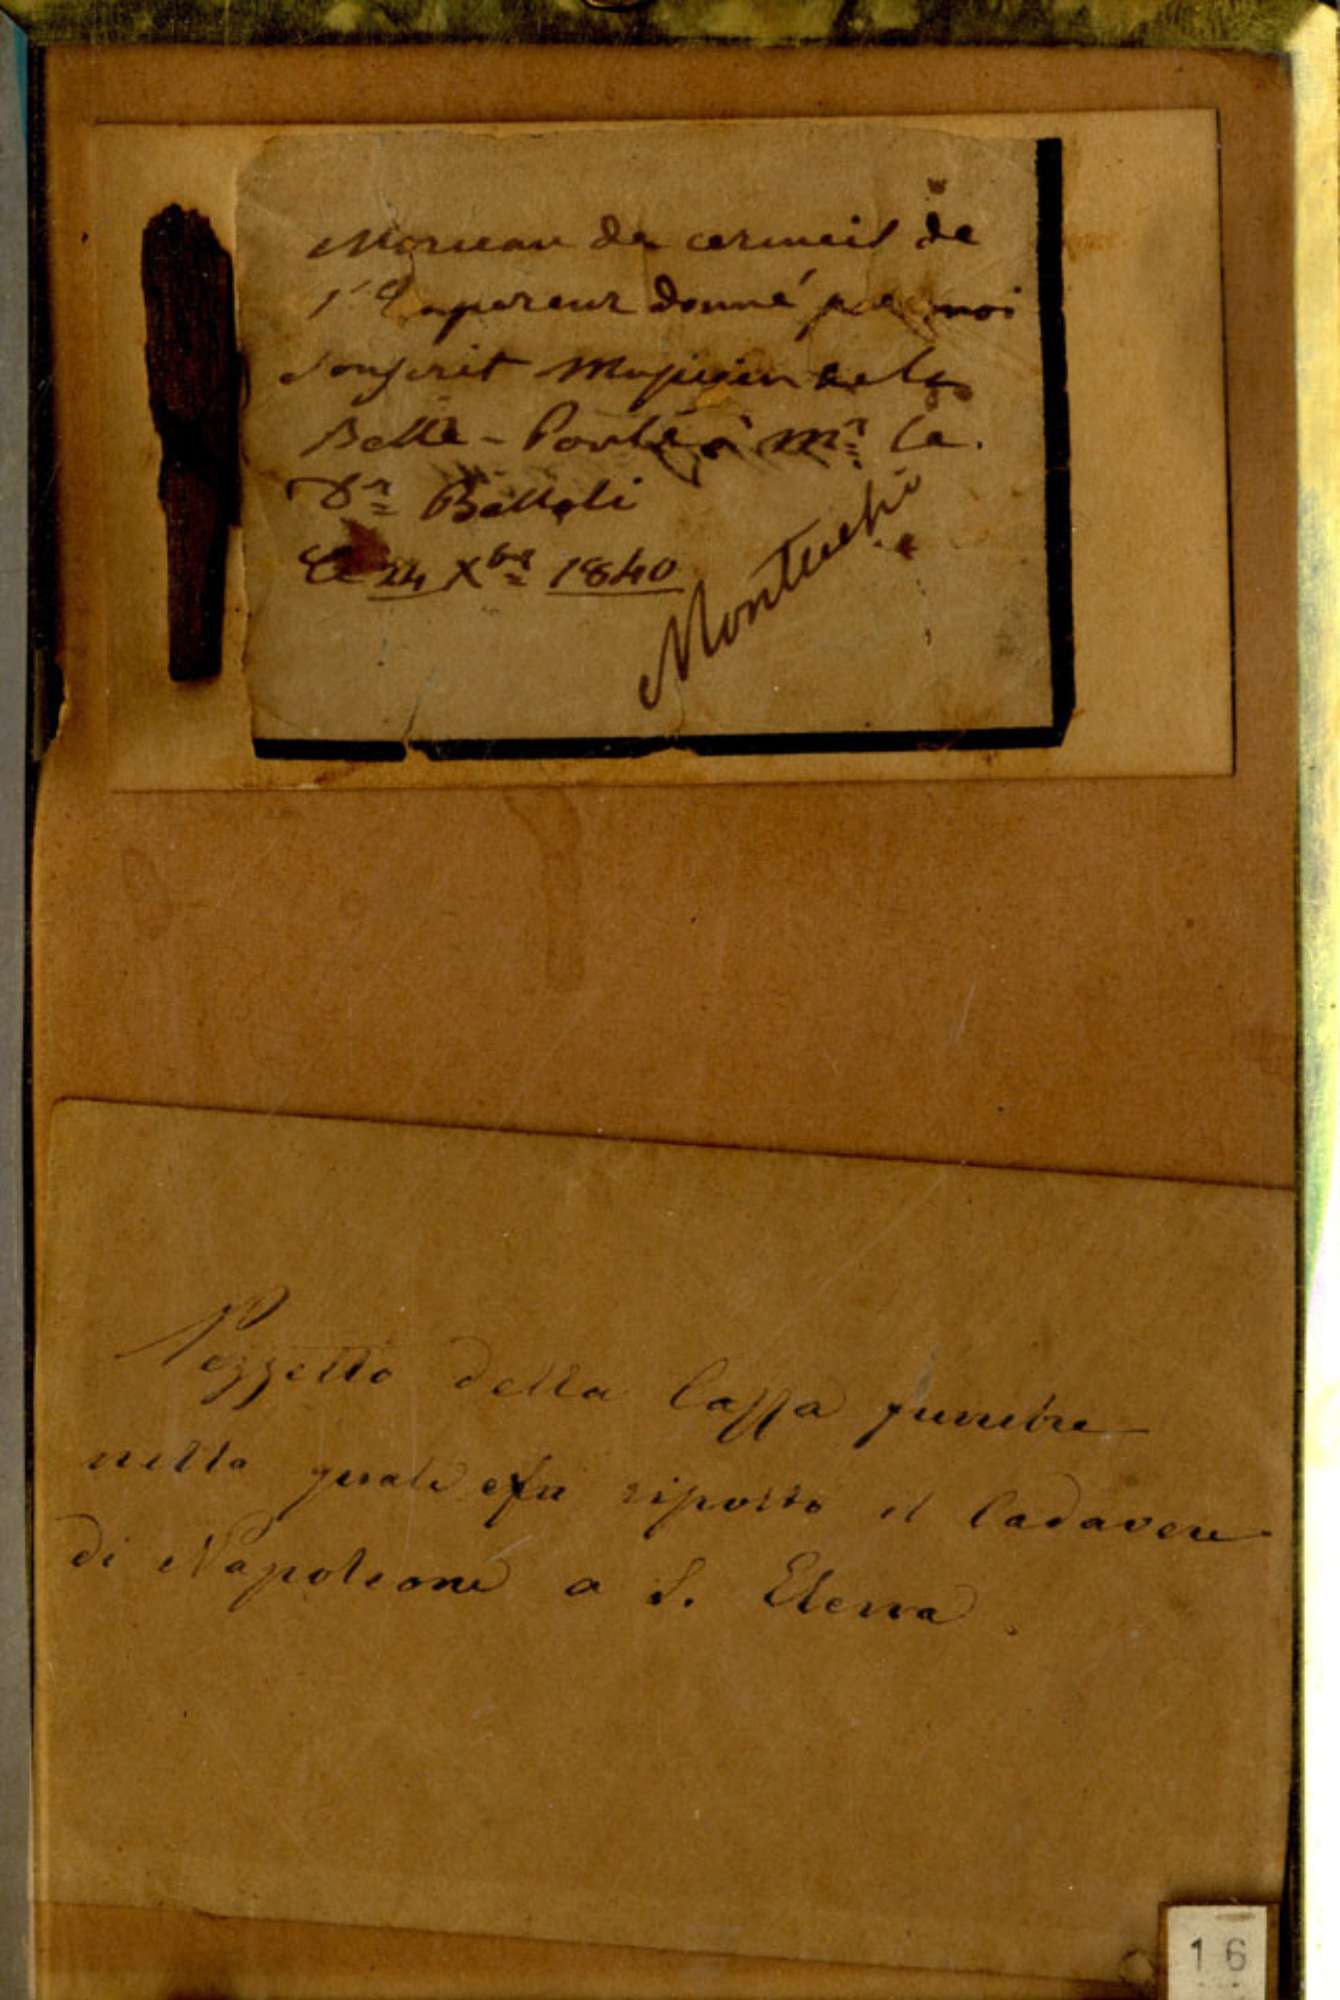 Morceau du cerceuil de
l'Empereur donné par moi
soussigné Musicien de la
Belle-Poule à Mr. le
Dr. Bettoli
le 24 Xbre 1840
Montuchi
Pezzetto della Cassa funebre
nella quale fu riposto il Cadavere
di Napoleone a S. Elena.
16